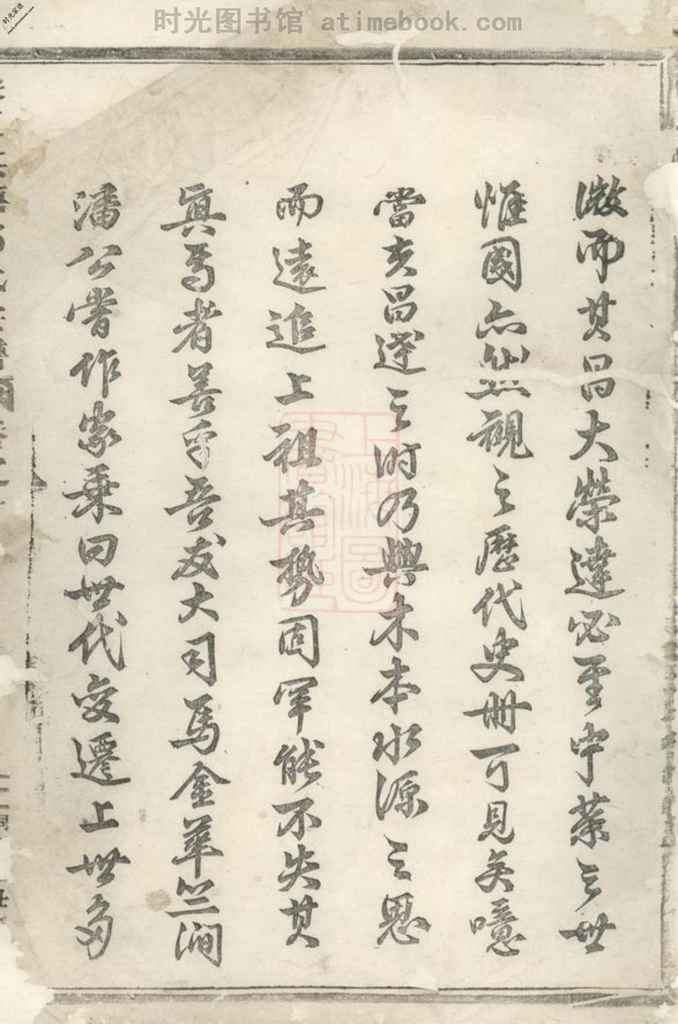 时光图书馆 atimebook.com
微而其昌大榮達必至中葉之世
惟國亦然觀之歷代史冊可見矣噫
當其昌達之时乃興木本水源之思
而遠追上祖其勢固罕能不失其
真焉者善乎吾友大司馬金華竺澗
潘公嘗作家乘曰世代变遷上世多